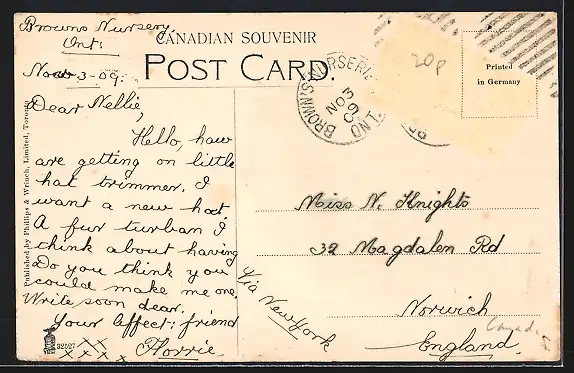 Browns Nursery
Ont:
Nov 3-09.
CANADIAN SOUVENIR
POST CARD.
Printed
in Germany
20p
BROWN'S NURSERIE
NO 3
09
ONT
Dear Nellie,
Hello, how
are getting on little
hat trimmer. I
want a new hat.
A fur turban I
think about having
Do you think you
could make me one.
Write soon dear.
Your affect: friend
Florrie.
xx
xxxx
Via New York
Miss N. Knights
32 Magdalen Rd
Norwich
England.
Published by Phillips & Wrinch, Limited, Toronto
32527